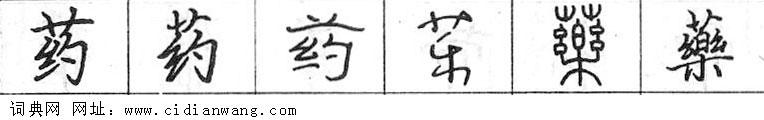 药 药 药 茶 藥 藥
词典网 网址：www.cidianwang.com